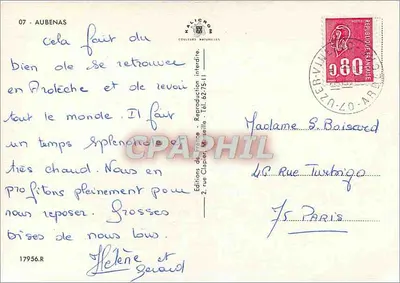 07 - AUBENAS
Cela fait du
bien de se retrouver
en Ardèche et de revoir
tout le monde. Il fait
un temps splendide et
très chaud. Nous en
profitons pleinement pour
nous reposer. Grosses
bises de nous tous.
Hélène et
Gérard
17956.R
HALICROM
COULEURS NATURELLES
Editions de France - Reproduction interdite.
2, rue Clapier, Marseille - Tél. 62-75-11
CPAPHIL
0,80
Madame S. Boiscard
46 Rue Turbigo
75 PARIS